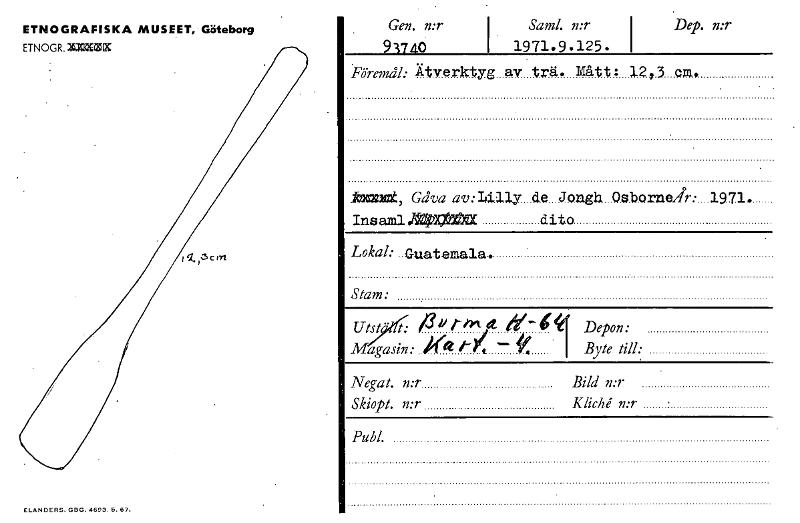 ETNOGRAFISKA MUSEET, Göteborg
ETNOGR.
12,3cm
ELANDERS. GBG. 4693. 6. 67.
Gen. n:r Saml. n:r Dep. n:r
93740 1971.9.125.
Föremål: Ätverktyg av trä. Mått: 12,3 cm.
Gåva av: Lilly de Jongh Osborne År: 1971.
Insaml. dito
Lokal: Guatemala.
Stam:
Utställt: Burma H-64 Depon:
Magasin: Kart. - 4. Byte till:
Negat. n:r Bild n:r
Skiopt. n:r Kliché n:r
Publ.